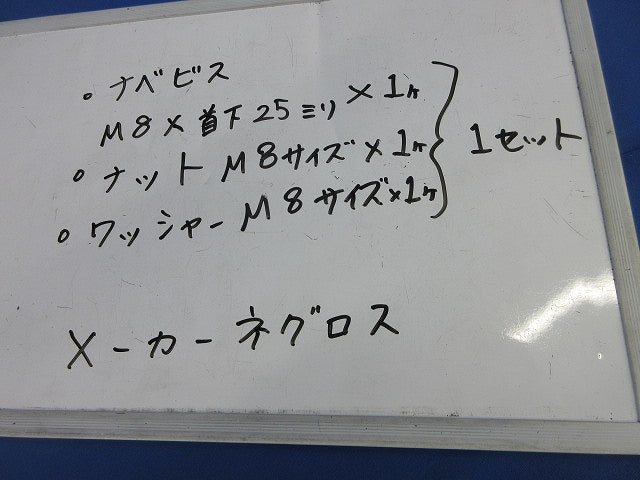 。ナベビス
M8×首下25ミリ×1ヶ
。ナット M8サイズ×1ヶ
。ワッシャーM8サイズ×1ヶ
1セット
メーカーネグロス